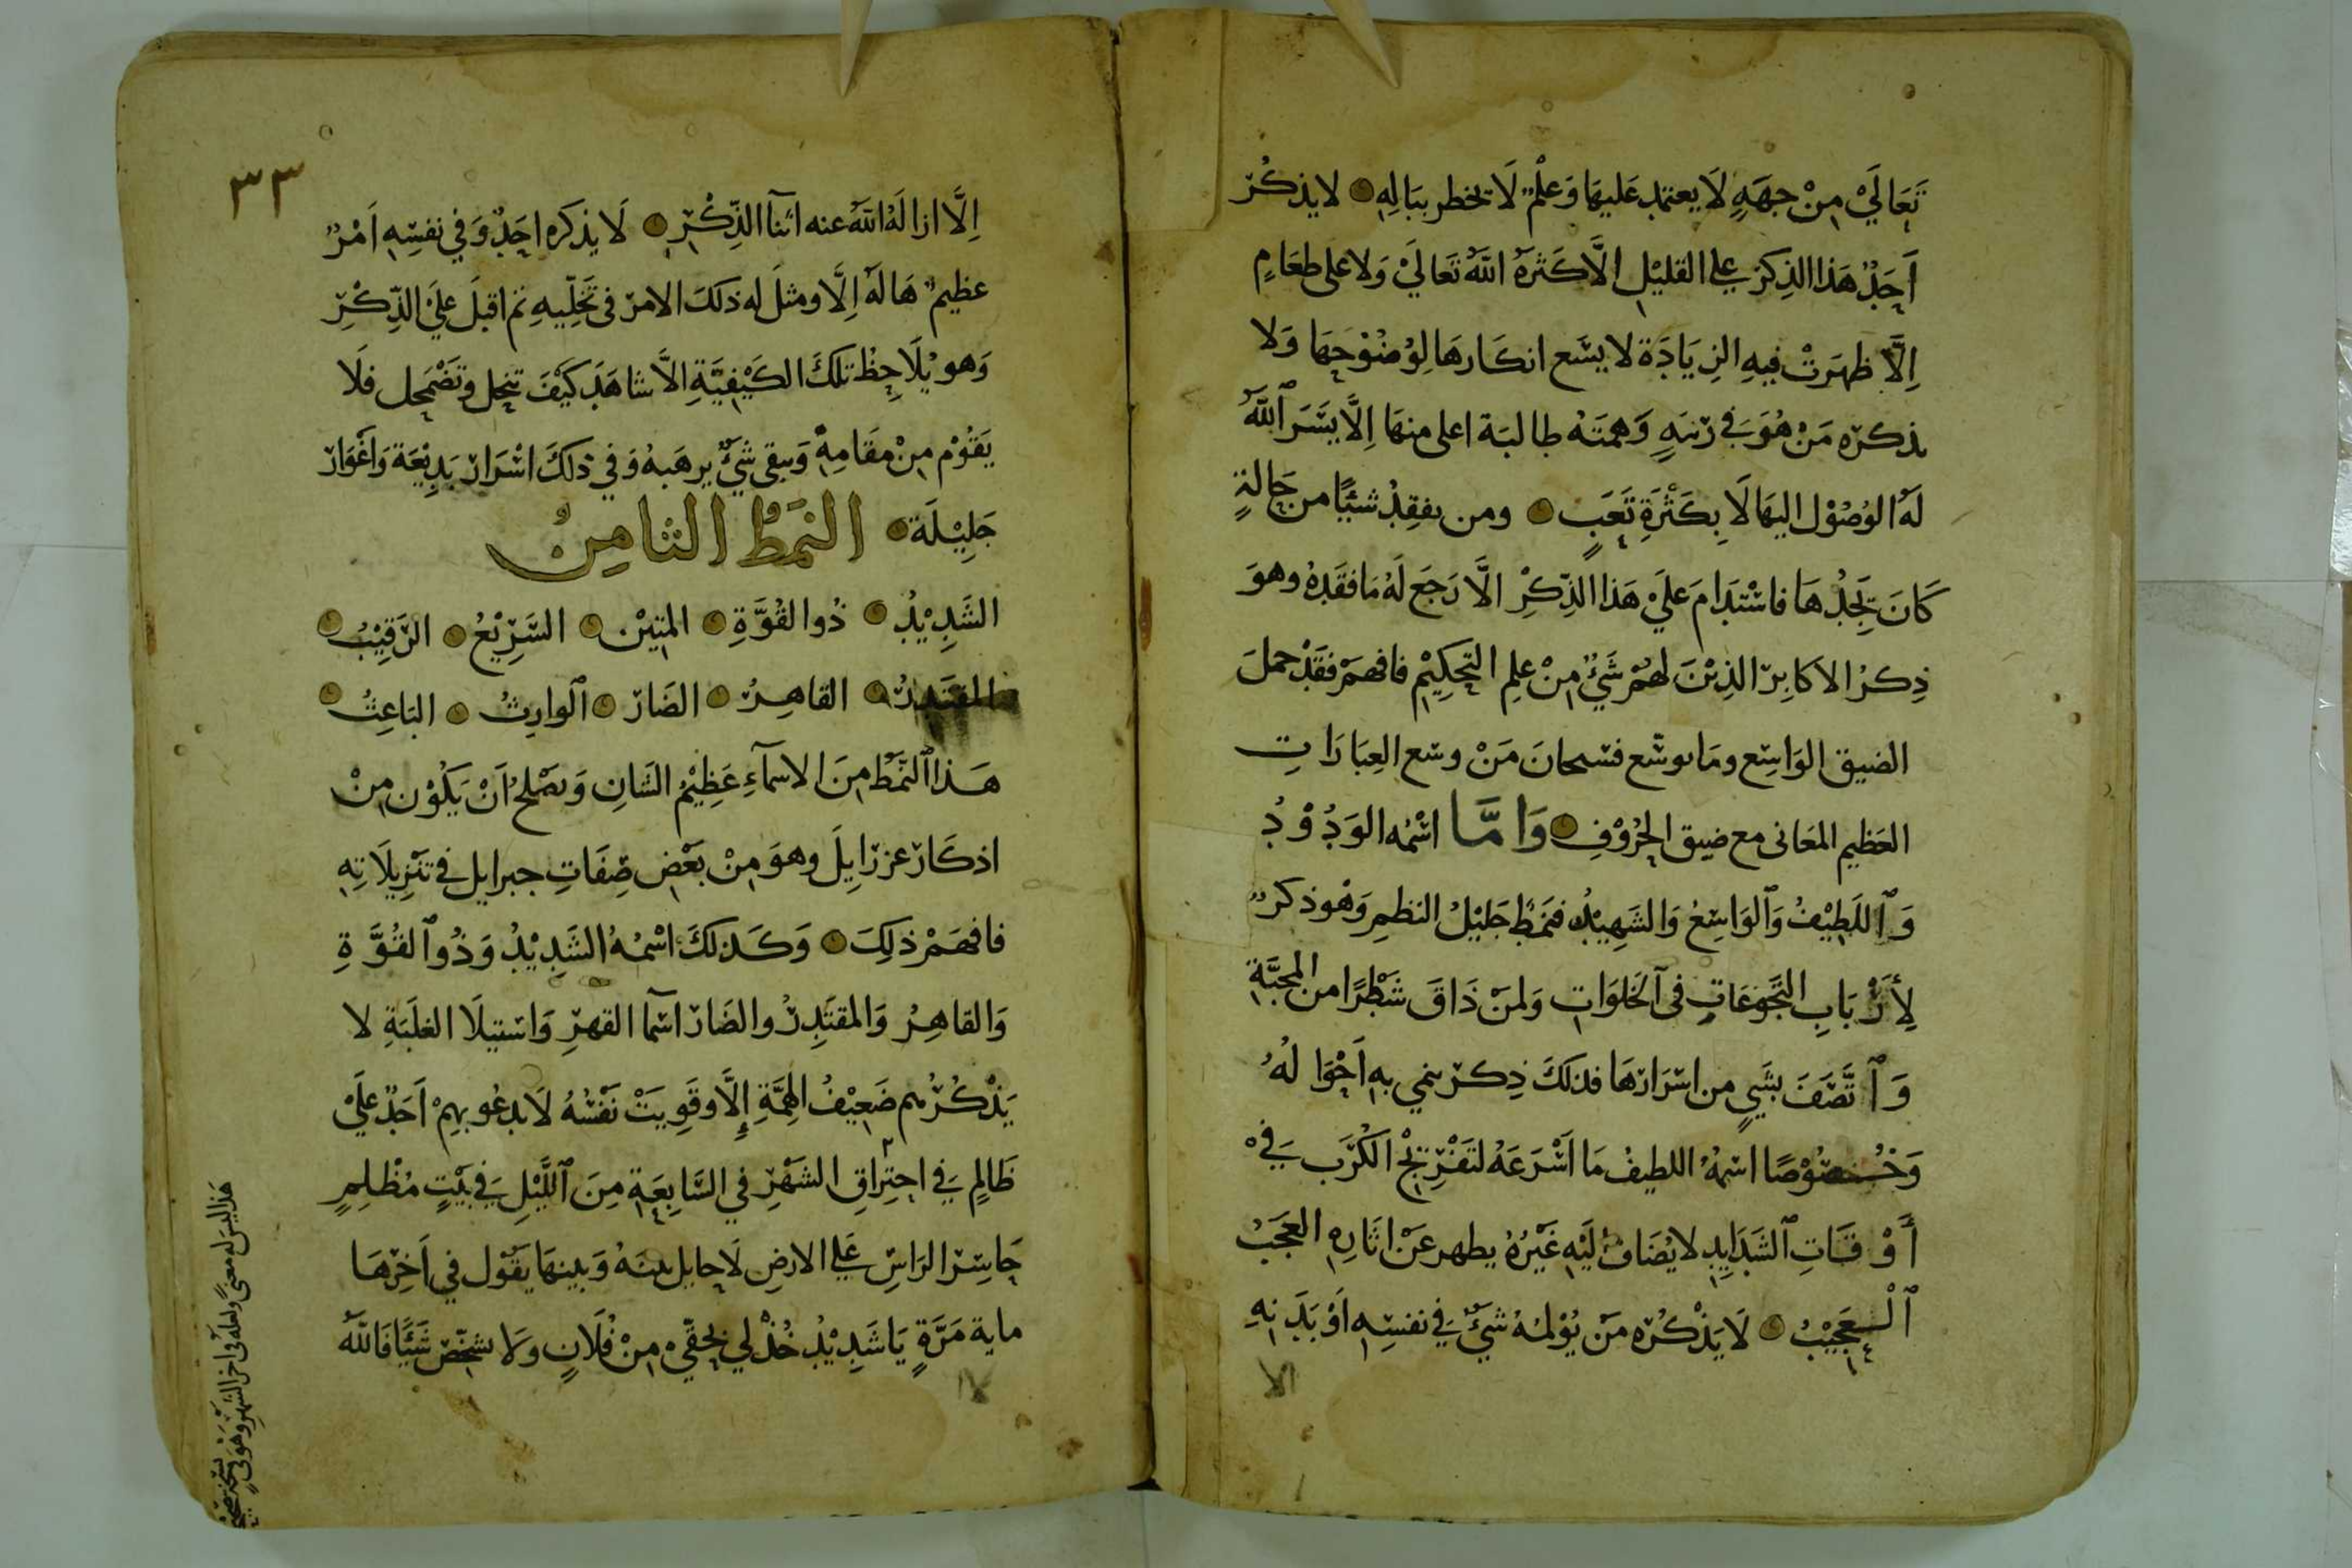 تَعَالَيْ مِنْ جِهَةٍ لَا يعتمد عَليهَا وَعلْمٌ لَا يخطر ببَالِهِ لا يذكُر
أَحَدٌ هَذا الذِكرَ علي القليْلِ الَّا كَثرهُ اللَّهُ تَعَاليَ وَلا على طعَامٍ
اِلَّا ظهَرَتْ فيهِ الزيَادَة لا يسَع انكَارهَا لِوُضُوْحِهَا وَلا
يذكره مَنْ هُوَ في رتبَةٍ وَهمتَهُ طالبَة اعلى منهَا اِلَّا يسَّرَ ٱللَّهُ
لَهُ الوُصُوْل اليهَا لَا بِكَثْرَةِ تَعَبٍ ومن يفقِدْ شيئًا من حَالةٍ
كَانَ يَجِدُهَا فاسْتدَامَ عَليَ هَذا الذِّكْرِ الَّا رَجَعَ لَهُ مَا فقَدهُ وهوَ
ذِكرُ الاكابِر الذِيْنَ لهُمْ شَيْءٌ مِنْ علِم التحكِيْمِ فافهَمْ فقَدْ حملَ
الضيق الوَاسِع ومَا يوسّع فسبحانَ مَنْ وسَع العِبَارَاتِ
العَظيم المعَانى مع ضيق الحُرُوْفِ وَامَّا اسْمُه الوَدُوْدُ
وَٱللَطِيْفُ وَٱلوَاسِعُ وَالشَهِيْدُ فنمَطٌ جَليْلُ النظمِ وَهُو ذكرٌ
لِأَرْبَابِ التَّجَوّعَاتِ فى ٱلخَلوَاتِ وَلمنْ ذَاقَ شَطْرًا من المحبَّةِ
وَٱتَّصَفَ بشَيءٍ من اسْرَارهَا فذلكَ ذِكر ينمي بهِ اَحْوَالُهُ
وَخُصُوْصًا اسمُهُ اللطيفُ مَا اَسْرَعَهُ لتَفْرِيْجْ الكُرَب فيْ
أَوْقَاتِ ٱلشَدَايِدِ لا يُضَافُ اليْهِ غَيْرُهُ يظهر عَنْ اثَارِهِ العَجَبُ
ٱلْعَجِيْبُ لَا يَذْكُرُه مَنْ يُوْلمُهُ شيْءٌ في نفسِهِ اَوْ بَدَنِهِ
الا
٣٣
اِلَّا ازالَهُ اللَّهُ عنه اثنآ الذِّكْرِ لَا يذكره احَدٌ وَفي نفسِهِ اَمْرٌ
عظيمٌ هَالَهُ اِلَّا ومثلَ له ذلكَ الامرَ فى تَخَلّيهِ ثم اقبلَ عليَ الذِّكْرِ
وَهو يُلَاحِظُ تلكَ الكَيْفِيَّةِ الاَّ شاهَدَ كَيْفَ تنحل وَتضْمَحِل فلَا
يَقُوْم مِنْ مقَامِهِ وَيبقى شيْءٌ يرهَبهُ وَفي ذلكَ اسْرَارٌ بَدِيْعَة وَاَغْوَارٌ
جَلِيْلَة النَمَطُ الثامِنُ
الشَدِيْدُ ذُو القُوَّةِ المتِيْن السَّرِيْعُ الرَّقِيْبُ
المقتدِرُ القاهِرُ الضَارّ ٱلوارِثُ البَاعِثُ
هَذا ٱلنَّمَطُ مِنَ الاسمآءِ عَظِيْمُ الشَانِ وَيصْلحُ اَنْ يَكُوْن مِنْ
اذكَار عزرَايِلَ وهوَ مِنْ بَعْضِ صِفَاتِ جبرايل فى تنْزِيلَاتِهِ
فافهَمْ ذلِكَ وَكَذلكَ اسْمُهُ الشَدِيْدُ وَذُو ٱلقُوَّةِ
وَالقاهِرُ وَالمقتَدِرُ والضَارّ اسْمَا القهرِ وَاسْتيلَا الغلَبَةِ لا
يَذْكُرُهم ضَعِيْفُ الهِمَّةِ إِلَّا وقَوِيَتْ نَفْسُهُ لَا يدعُو بهِمْ اَحَدٌ عَليْ
ظَالِمٍ في احتِرَاقِ الشَهْرِ في السَّابِعَةِ مِنَ ٱللَّيْلِ في بَيْتٍ مُظْلِمٍ
حَاسِرَ الرَاسِ عَلي الارضِ لَا حايل بينهُ وَبينهَا يَقُوْل في اَخِرهَا
ماية مَرَّةٍ يَا شَدِيْدُ خُذْ لي بحَقّيْ مِنْ فُلَانٍ وَلَا يشخّصْ شَيْئًا فَاللَّهُ
هَذا ليسَ له معنًى ولعله فى اخر الشهر وَهُوَ فى نسخة صحيح